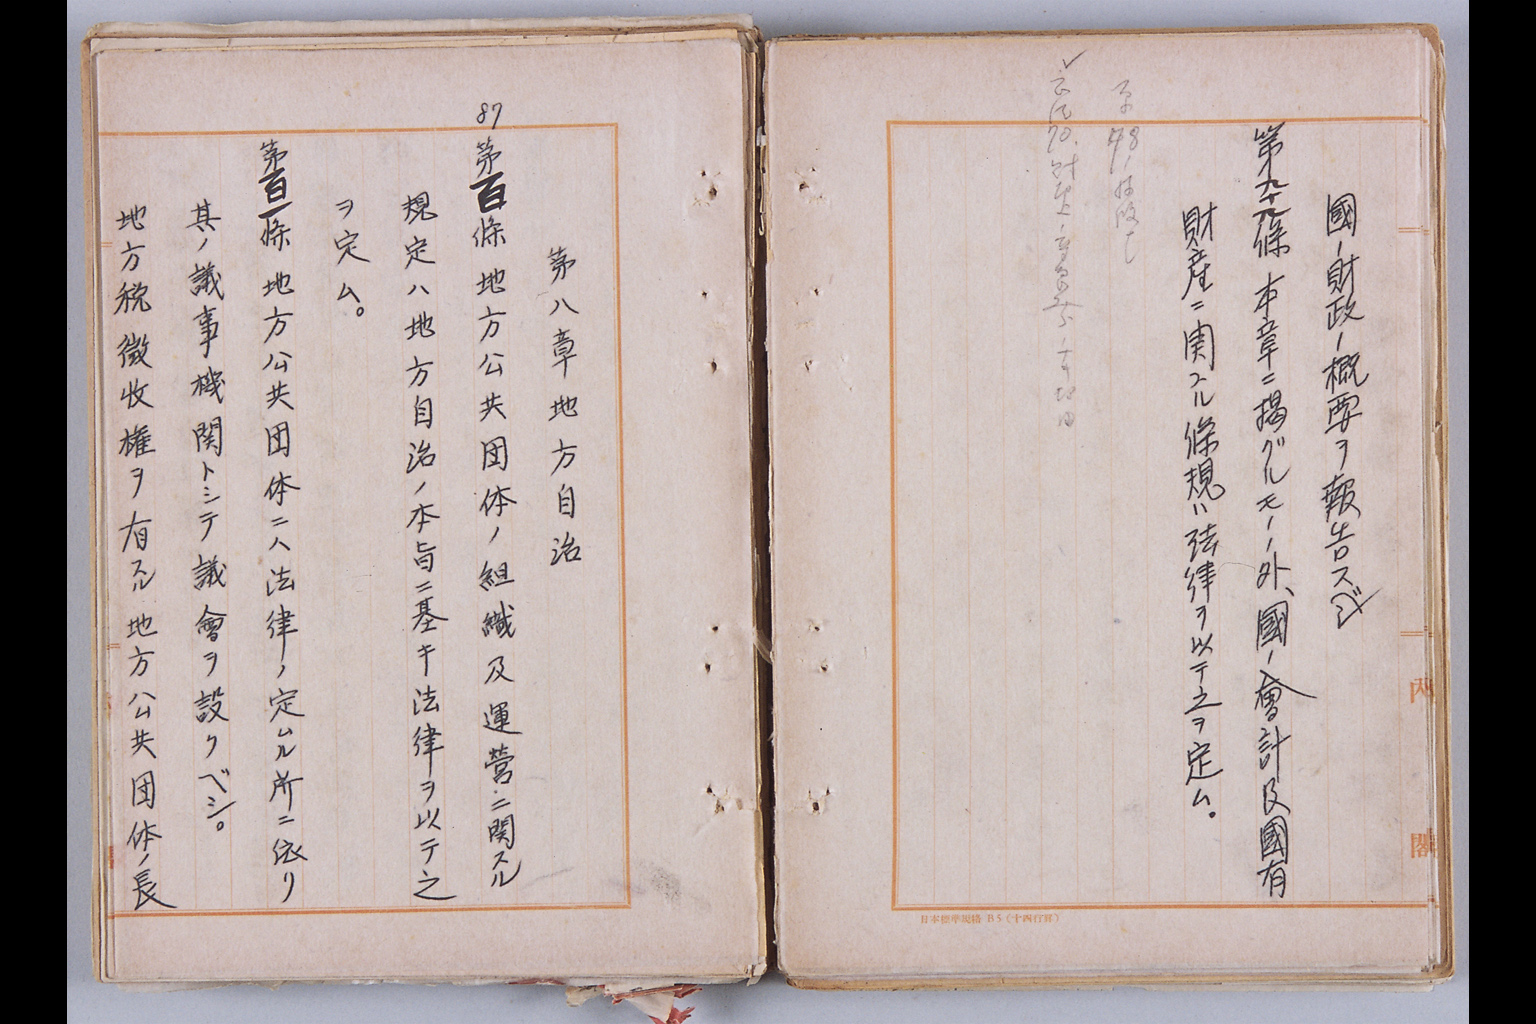 國ノ財政ノ概要ヲ報告スベシ
第九十九條 本章ニ掲グルモノノ外、國ノ會計及國有
財産ニ関スル條規ハ法律ヲ以テ之ヲ定ム。
内閣
日本標準規格 B5(十四行罫)
第八章 地方自治
87
第百條 地方公共団体ノ組織及運営ニ関スル
規定ハ地方自治ノ本旨ニ基キ法律ヲ以テ之
ヲ定ム。
第百一條 地方公共団体ニハ法律ノ定ムル所ニ依リ
其ノ議事機関トシテ議會ヲ設クベシ。
地方税徴收権ヲ有スル地方公共団体ノ長